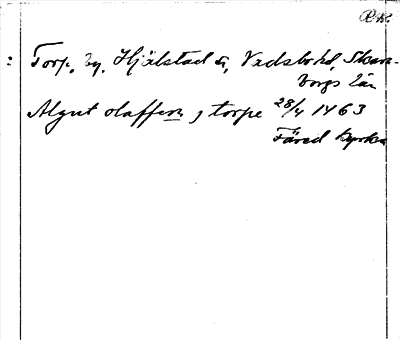 Torp, by, Hjälstad sn, Vadsbo hd, Skara-
borgs län
Algut olaffson j torpe 28/4 1463
Färed kyrka